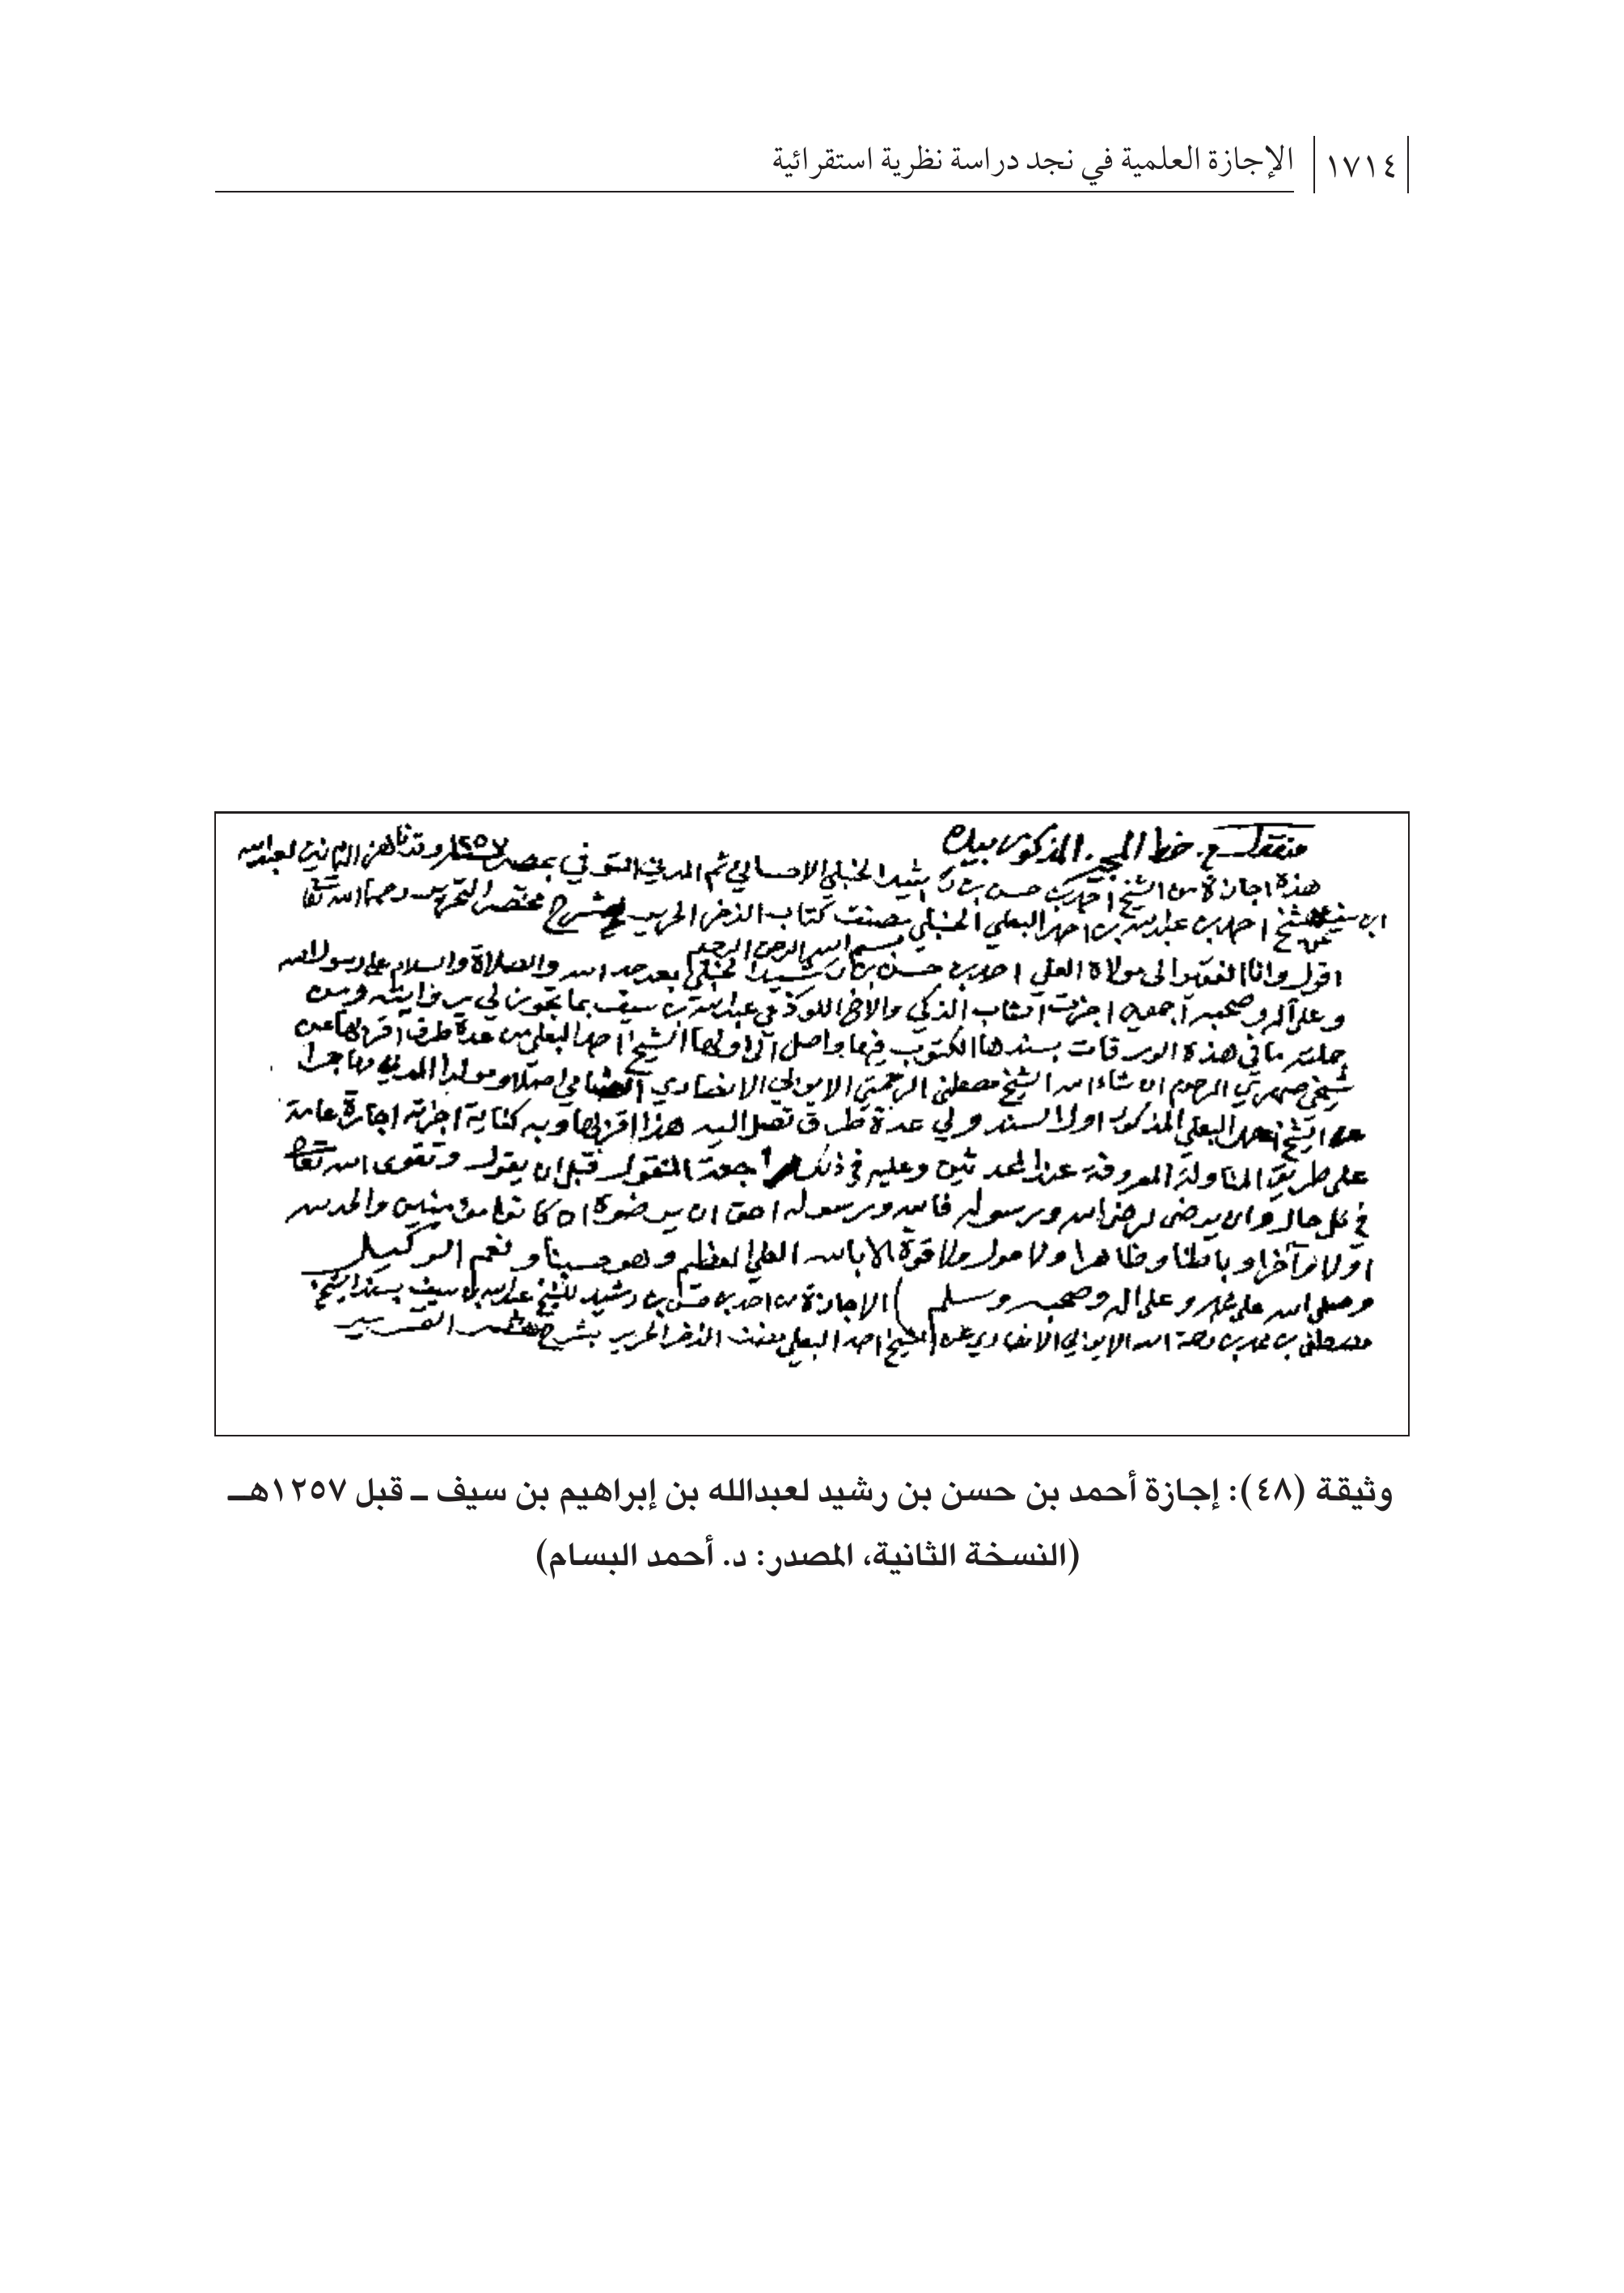 ١٧١٤ الإجازة العلمية في نجد دراسة نظرية استقرائية
خط المجيز المذكور بيده
هذه اجازة من الشيخ احمد بن حسن بن رشيد الحنبلي الاحسائي ثم المدني المتوفي بمصر ١٢٥٧
الشيخ احمد بن عبدالله بن احمد البعلي الحنبلي مصنف كتاب الذخر الحرير شرح مختصر التحرير رحمهما الله تعا
بسم الله الرحمن الرحيم
اقول وانا الفقير الى مولاه العلي احمد بن حسن بن رشيد الحنبلي بعد حمد الله والصلاة والسلام على رسول الله
وعلى آله وصحبه اجمعين اجزت الشاب الذكي والاخ اللوذعي عبدالله بن سيف بما تجوز لي روايته ومن
جملته ما في هذه الورقات بسندها المكتوب فيها واصل الى اولها الشيخ احمد البعلي من عدة طرق اقربها عن
شيخي صهري المرحوم ان شاء الله الشيخ مصطفى الرحمتي الايوبي الانصاري الشامي اصلا ومولدا المدني مهاجرا
عن الشيخ احمد البعلي المذكور اولا لسند ولي عدة طرق تصل اليه هذا اقربها وبه كفاية اجزته اجازة عامة
على طريق المناولة المعروفة عند المحدثين وعليه في ذلك مراجعة المنقول قبل ان يقول وتقوى الله تعا
في كل حال وان يرضى لرضى الله ورسوله فالله ورسوله احق ان يرضوه ان كانوا مؤمنين والحمد لله
اولا وآخرا وباطنا وظاهرا ولا حول ولا قوة الا بالله العلي العظيم وهو حسبنا ونعم الوكيل
وصلى الله على محمد وعلى اله وصحبه وسلم ) الاجازة من احمد بن حسن بن رشيد للشيخ عبدالله بن سيف بسند الشيخ
مصطفى بن محمد بن رحمة الله الايوبي الانصاري عن الشيخ احمد البعلي مصنف الذخر الحرير بشرح مختصر التحرير
وثيقة (٤٨): إجازة أحمد بن حسن بن رشيد لعبدالله بن إبراهيم بن سيف ـ قبل ١٢٥٧هـ
(النسخة الثانية، المصدر: د. أحمد البسام)